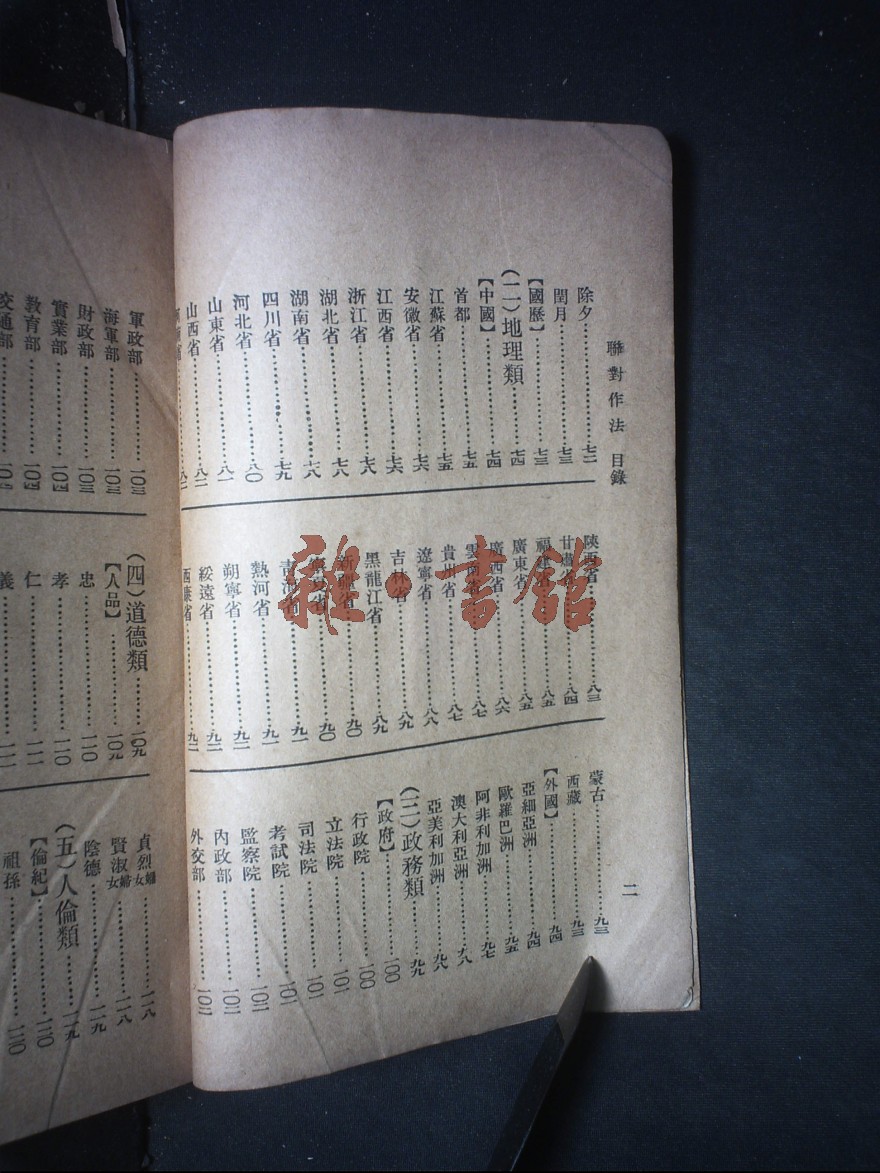 聯對作法 目錄
二
除夕……七二
閏月……七三
【國歷】……七三
(二)地理類……七四
【中國】……七四
首都……七五
江蘇省……七五
安徽省……七六
江西省……七六
浙江省……七八
湖北省……七八
湖南省……七八
四川省……七九
河北省……八〇
山東省……八一
山西省……八二
陝西省……八三
甘肅省……八四
福建省……八五
廣東省……八五
廣西省……八六
雲南省……八七
貴州省……八七
遼寧省……八八
吉林省……八九
黑龍江省……八九
新疆省……九〇
寧夏省……九〇
青海省……九一
熱河省……九一
朔寧省……九二
綏遠省……九二
西康省……九二
蒙古……九三
西藏……九三
【外國】……九四
亞細亞洲……九四
歐羅巴洲……九五
阿非利加洲……九七
澳大利亞洲……九八
亞美利加洲……九八
(三)政務類……九九
【政府】……一〇〇
行政院……一〇〇
立法院……一〇一
司法院……一〇一
考試院……一〇一
監察院……一〇二
內政部……一〇二
外交部……一〇二
軍政部……一〇三
海軍部……一〇三
財政部……一〇三
實業部……一〇四
教育部……一〇四
交通部
(四)道德類……一〇九
【人品】……一〇九
忠……一一〇
孝……一一〇
仁……一一一
義……一一一
貞烈婦女……一一八
賢淑婦女……一一八
陰德……一一九
(五)人倫類……一一九
【倫紀】……一二〇
祖孫……一二〇
雜·書館